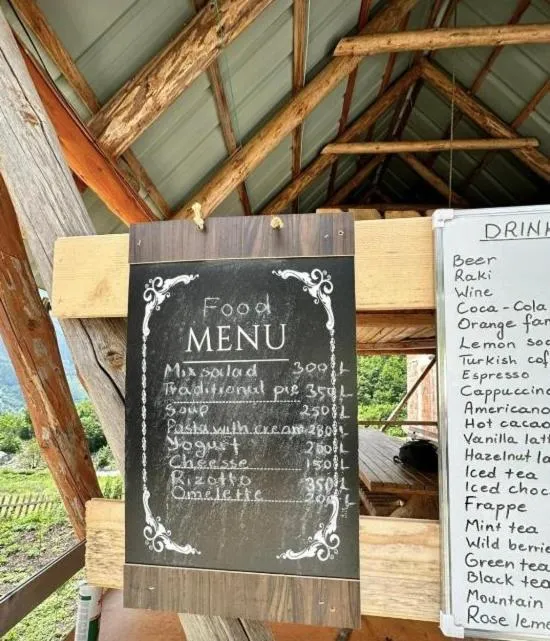 Food
MENU
Mix salad 300 L
Traditional pie 350 L
Soup 250 L
Pasta with cream 280 L
Yogurt 200 L
Cheesse 150 L
Rizotto 350 L
Omelette 300 L
DRIN
Beer
Raki
Wine
Coca-Cola
Orange fan
Lemon so
Turkish cof
Espresso
Cappuccino
Americano
Hot cacao
Vanilla latt
Hazelnut la
Iced tea
Iced choc
Frappe
Mint tea
Wild berrie
Green tea
Black tea
Mountain
Rose lemo